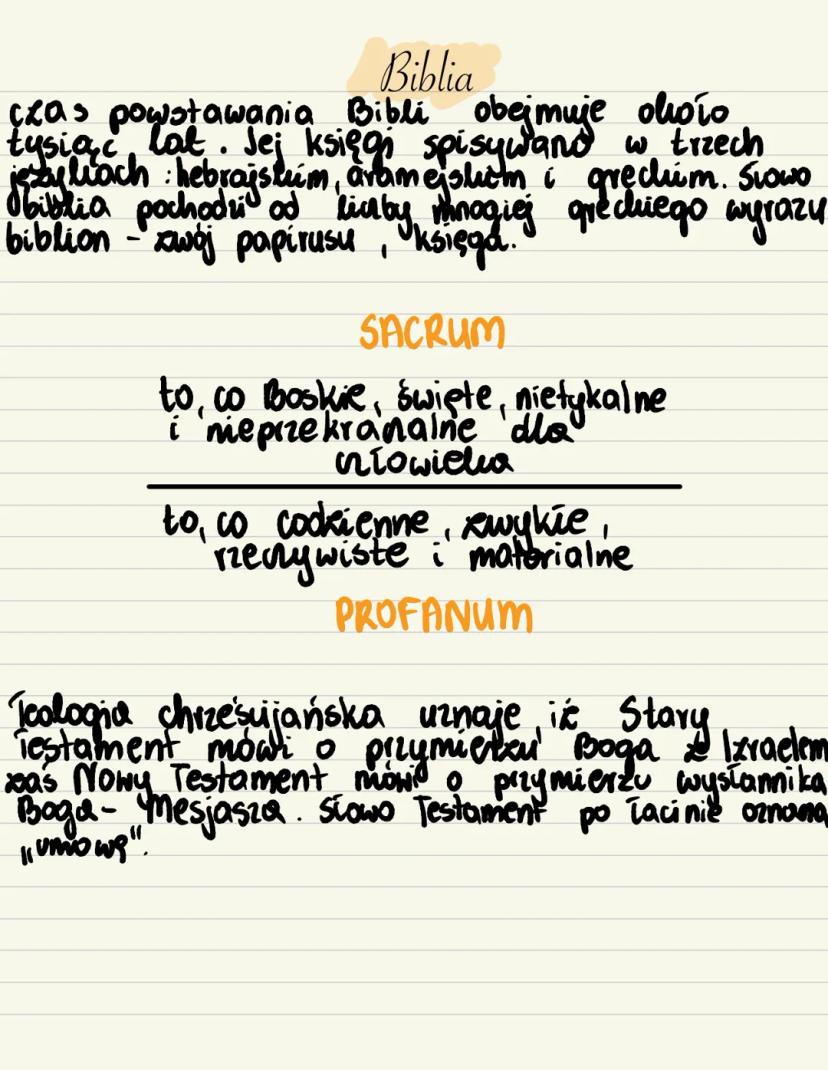 Biblia
czas powstawania Bibli obejmuje około
tysiąc lat. Jej księgi spisywano w trzech
językach : hebrajskim, aramejskim i greckim. Słowo
biblia pochodzi od liczby mnogiej greckiego wyrazu
biblion - zwój papirusu, księga.
SACRUM
to, co Boskie, święte, nietykalne
i nieprzekraczalne dla
człowieka
to, co codzienne, zwykłe,
rzeczywiste i materialne
PROFANUM
Teologia chrześcijańska uznaje, iż Stary
Testament mówi o przymierzu Boga z Izraelem
zaś Nowy Testament mówi o przymierzu wysłannika
Boga - Mesjasza. Słowo Testament po łacinie oznacza
„umowę".